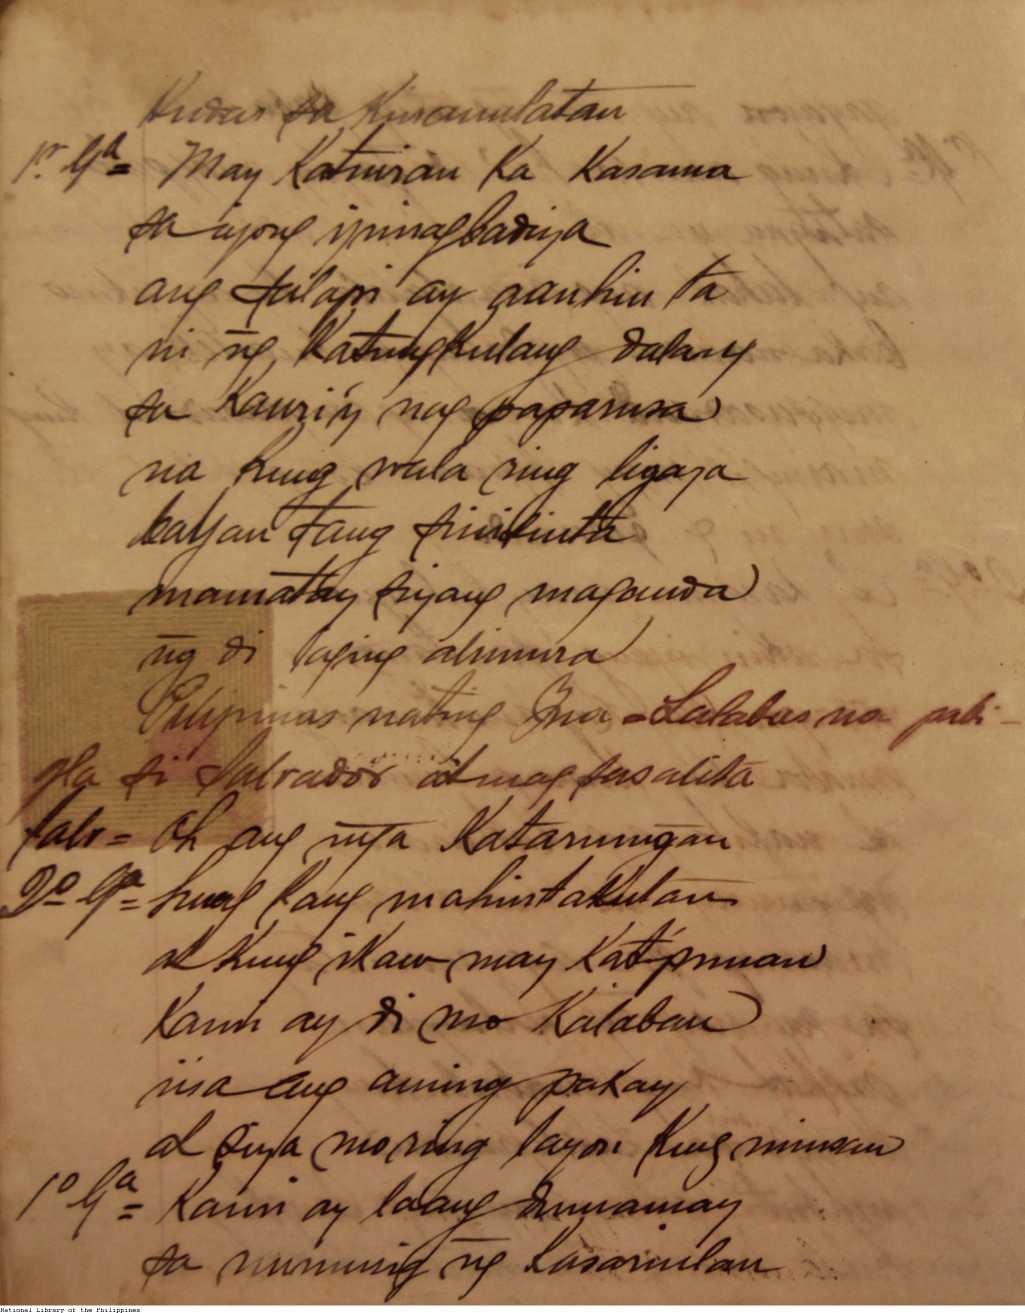 sa
1r. Ga = May Katuiran Ka Kasama
sa iyong ipinagbadiya
ang salapi ay aanhin ta
ni ng Katungkulang dalang
sa Kauri'y nag paparusa
na kung wala ring ligaya
bayan tang sinisinta
mamatay siyang maganda
ng di laging alimura
Pilipinas nating Ina = Lalabas na pabi-
gla si Salvador at mag sasalita
Salv = Oh ang mga Katarungan
2o Ga = huag kang mahintakutan
at kung ikaw may Katipunan
Kami ay di mo Kalaban
iisa ang aming pakay
at siya mo ring layon kung minsan
1o Ga = Kami ay laang dumamay
sa ng Kasarinlan
National Library of the Philippines